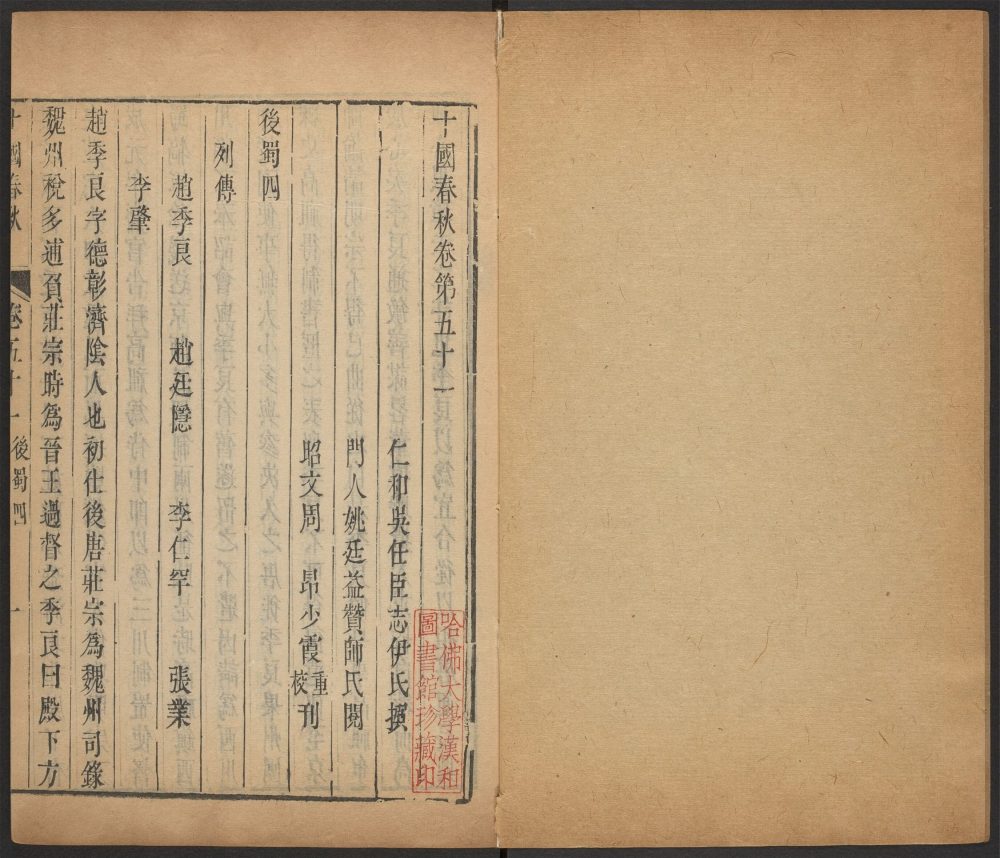 十國春秋卷第五十一
仁和吳任臣志伊氏撰
門人姚廷益贊師氏閱
昭文周 昂少霞重校刊
後蜀四
列傳
趙季良 趙廷隱 李仁罕 張業
李肇
趙季良字德彰濟陰人也初仕後唐莊宗爲魏州司錄
魏州稅多逋負莊宗時爲晉王過督之季良曰殿下方
十國春秋 卷五十一 後蜀四 一
哈佛大學漢和
圖書館珍藏印